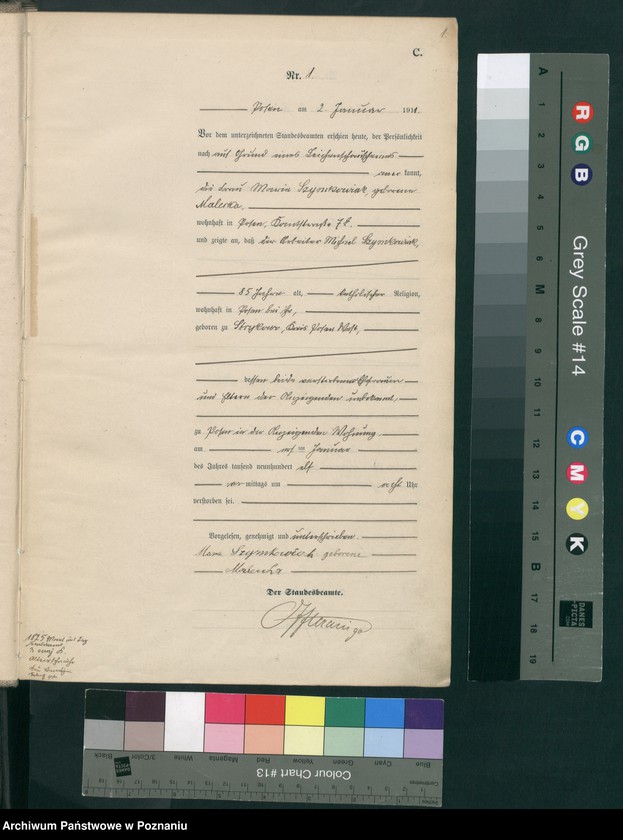 1.
C.
Nr. 1
Posen am 2 Januar 1911.
Vor dem unterzeichneten Standesbeamten erschien heute, der Persönlichkeit
nach auf Grund eines Leichenschauscheines
aner kannt,
die Frau Maria Szymkowiak, geborene
Malecka,
wohnhaft in Posen,
und zeigte an, daß der Arbeiter Michael Szymkowiak,
85 Jahre alt, katholischer Religion,
wohnhaft in Posen bei ihr,
geboren zu Strykowo, Kreis Posen West,
dessen beide verstorbenen Ehefrauen
und Eltern der Anzeigenden unbekannt
zu Posen in der Anzeigenden Wohnung
am Januar
des Jahres tausend neunhundert elf
vor mittags um acht Uhr
verstorben sei.
Vorgelesen, genehmigt und unterschrieben.
Maria Szymkowiak geborene
Malecka
Der Standesbeamte.
A
1
2
3
4
5
6
M
8
9
10
11
12
13
14
15
B
17
18
19
R
G
B
Grey Scale #14
C
M
Y
K
DANES
PICTA
.COM
Colour Chart #13
Blue
Cyan
Green
Yellow
Red
Magenta
White
3/Color
Black
Centimetres
Inches
Archiwum Państwowe w Poznaniu